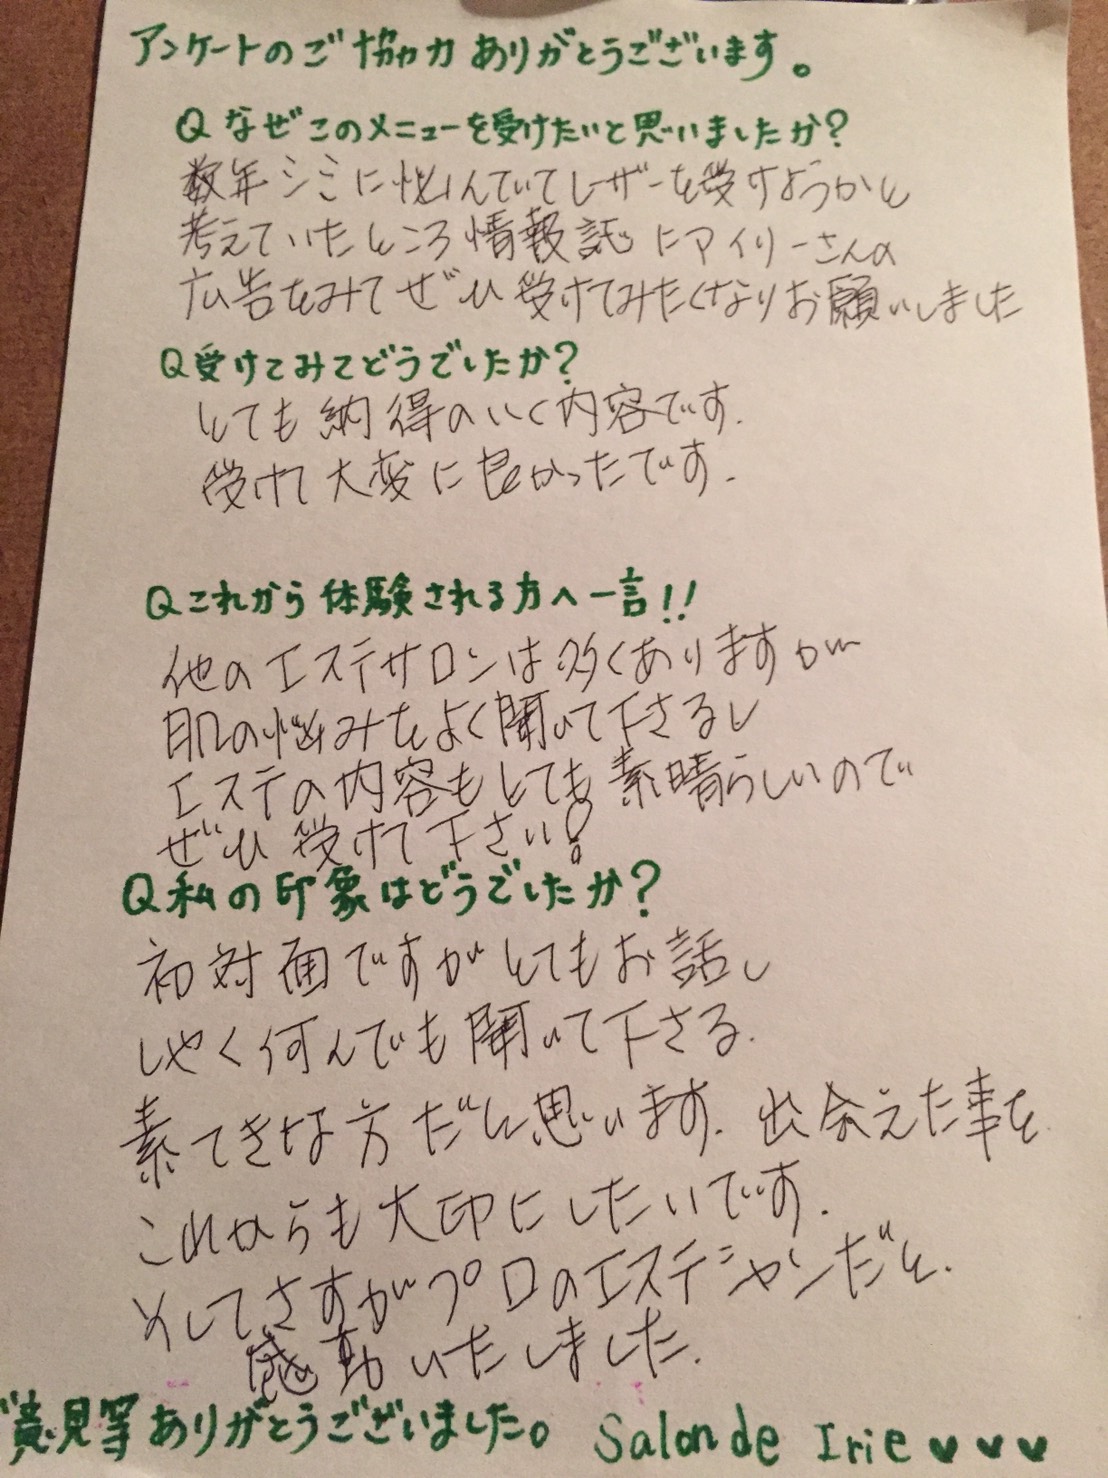 アンケートのご協力ありがとうございます。
Qなぜこのメニューを受けたいと思いましたか?
数年シミに悩んでいてレーザーを受けようかと
考えていたところ情報誌にアイリーさんの
広告をみてぜひ受けてみたくなりお願いしました
Q受けてみてどうでしたか?
とても納得のいく内容です.
受けて大変に良かったです.
Qこれから体験される方へ一言!!
他のエステサロンは多くありますが
肌の悩みをよく聞いて下さるし
エステの内容もとても素晴らしいので
ぜひ受けて下さい!
Q私の印象はどうでしたか?
初対面ですがとてもお話し
しやく何んでも聞いて下さる.
素てきな方だと思います.出会えた事を
これからも大切にしたいです.
そしてさすがプロのエステシャンだと.
感動いたしました.
ご意見等ありがとうございました。 Salon de Irie♥♥♥